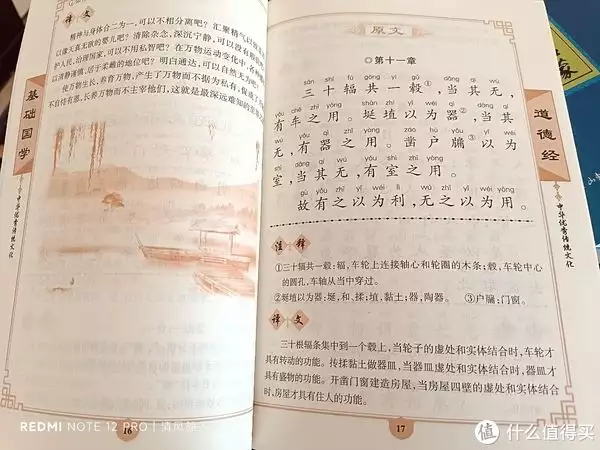 译文
精神与身体合二为一,可以不相分离吧?汇聚精气以
以像天真无欲的婴儿吧?清除杂念,深沉宁静,可以没有
护人民,治理国家,可以不用私智吧?在万物运动变化中,
以清静谨慎,居于柔雌的地位吧?明白通达,可以自然无为吧?
使万物生长,养育万物,产生了万物而不据为私有,
不自恃有恩,长养万物而不主宰他们,这就是最深远难知的
基础国学
中华优秀传统文化
16
原文
第十一章
sān shí fú gòng yī gǔ dāng qí wú
三十辐共一毂①,当其无,
yǒu chē zhī yòng shān zhí yǐ wéi qì dāng qí
有车之用。埏埴以为器②,当其
wú yǒu qì zhī yòng záo hù yǒu yǐ wéi
无,有器之用。凿户牖③以为
shì dāng qí wú yǒu shì zhī yòng
室,当其无,有室之用。
gù yǒu zhī yǐ wéi lì wú zhī yǐ wéi yòng
故有之以为利,无之以为用。
注释
①三十辐共一毂:辐,车轮上连接轴心和轮圈的木条;毂,车轮中心
的圆孔,车轴从当中穿过。
②埏埴以为器:埏,和、揉;埴,黏土;器,陶器。 ③户牖:门窗。
译文
三十根辐条集中到一个毂上,当轮子的虚处和实体结合时,车轮才
具有转动的功能。抟揉黏土做器皿,当器皿虚处和实体结合时,器皿才
具有盛物的功能。开凿门窗建造房屋,当房屋四壁的虚处和实体结合
时,房屋才具有住人的功能。
道德经
中华优秀传统文化
17
REDMI NOTE 12 PRO | 清风
值 什么值得买